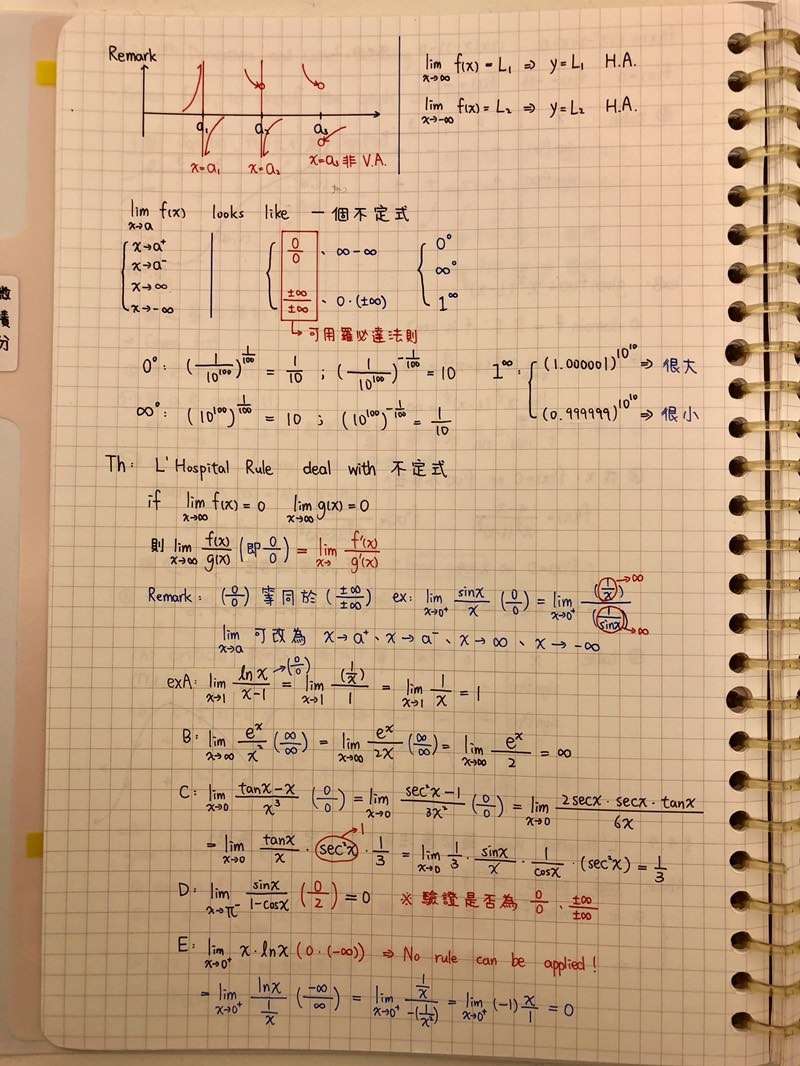 Remark
a₁ a₂ a₃
x=a₁ x=a₂ x=a₃ 非 V.A.
lim x→∞ f(x) = L₁ ⇒ y=L₁ H.A.
lim x→-∞ f(x) = L₂ ⇒ y=L₂ H.A.
lim x→a f(x) looks like 一個不定式
x→a⁺
x→a⁻
x→∞
x→-∞
0/0 、 ∞-∞
±∞/±∞ 、 0·(±∞)
0⁰
∞⁰
1^∞
↳ 可用羅必達法則
0⁰: (1/10¹⁰⁰)^(1/100) = 1/10 ; (1/10¹⁰⁰)^(-1/100) = 10
∞⁰: (10¹⁰⁰)^(1/100) = 10 ; (10¹⁰⁰)^(-1/100) = 1/10
1^∞: (1.000001)^10^10 ⇒ 很大
(0.999999)^10^10 ⇒ 很小
Th: L'Hospital Rule deal with 不定式
if lim x→∞ f(x) = 0 lim x→∞ g(x) = 0
則 lim x→∞ f(x)/g(x) (即 0/0) = lim x→ f'(x)/g'(x)
Remark: (0/0) 等同於 (±∞/±∞) ex: lim x→0⁺ sinx/x (0/0) = lim x→0⁺ (1/x)→∞ / (1/sinx)→∞
lim x→a 可改為 x→a⁺、x→a⁻、x→∞、x→-∞
exA: lim x→1 lnx/(x-1) →(0/0) = lim x→1 (1/x)/1 = lim x→1 1/x = 1
B: lim x→∞ eˣ/x² (∞/∞) = lim x→∞ eˣ/2x (∞/∞) = lim x→∞ eˣ/2 = ∞
C: lim x→0 (tanx-x)/x³ (0/0) = lim x→0 (sec²x-1)/3x² (0/0) = lim x→0 (2secx·secx·tanx)/6x
= lim x→0 tanx/x · sec²x →1 · 1/3 = lim x→0 1/3 · sinx/x · 1/cosx · (sec²x) = 1/3
D: lim x→π⁻ sinx/(1-cosx) (0/2) = 0 ※ 驗證是否為 0/0 、 ±∞/±∞
E: lim x→0⁺ x·lnx (0·(-∞)) ⇒ No rule can be applied!
= lim x→0⁺ lnx/(1/x) (-∞/∞) = lim x→0⁺ (1/x)/-(1/x²) = lim x→0⁺ (-1) x/1 = 0
微
積
分